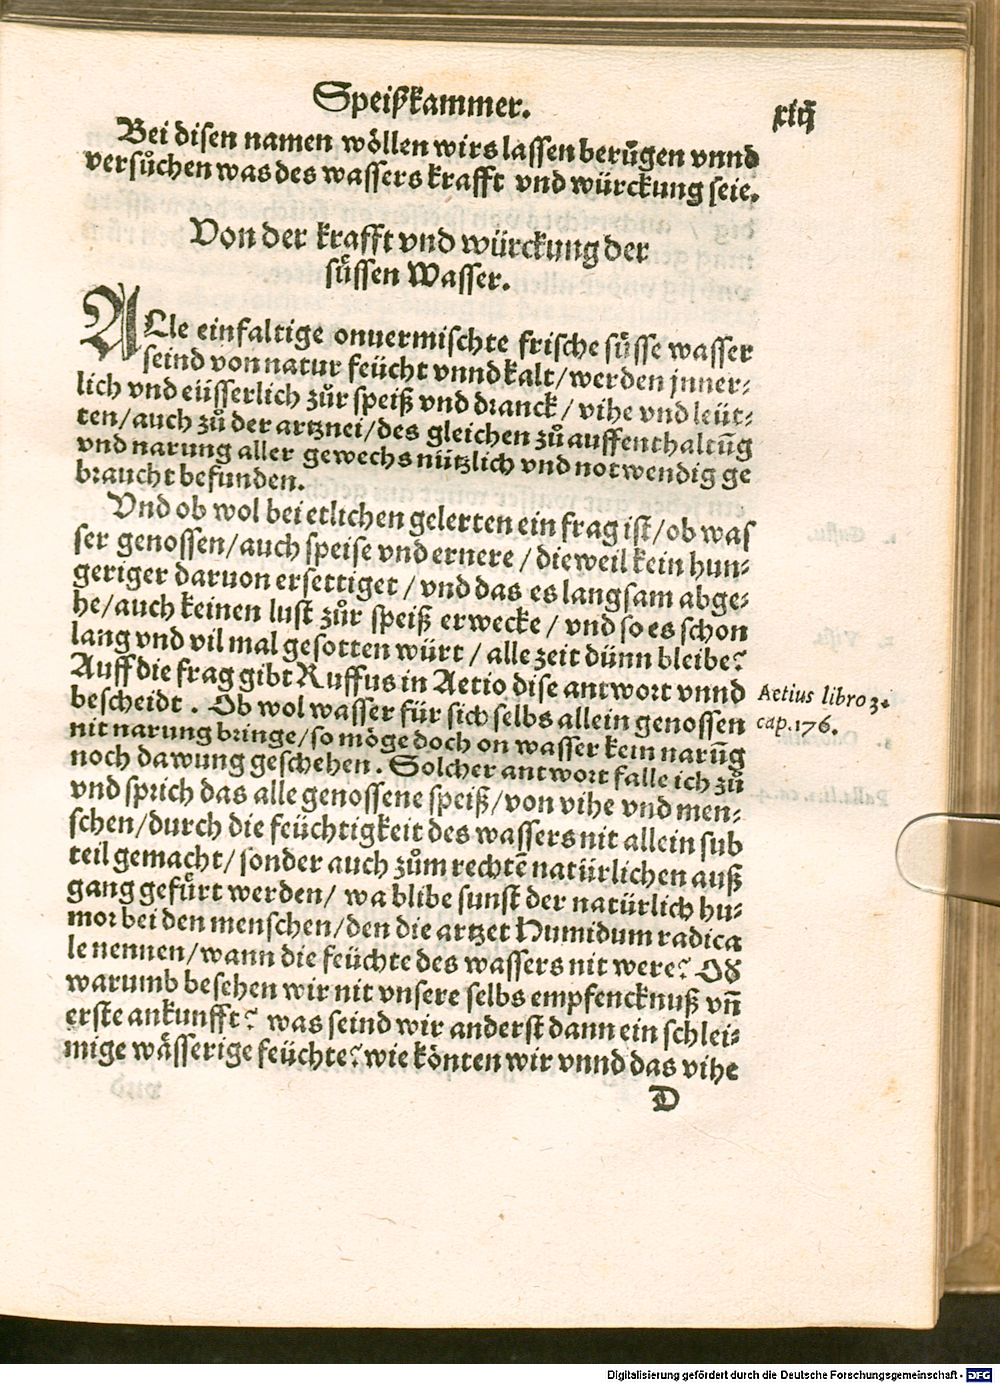 Speißkammer.
xiij
Bei disen namen wöllen wirs lassen berůgen vnnd
versůchen was des wassers krafft vnd würckung seie.
Von der krafft vnd würckung der
süssen Wasser.
ALle einfaltige onuermischte frische süsse wasser
seind von natur feücht vnnd kalt/werden jnner⸗
lich vnd eüsserlich zůr speiß vnd dranck/vihe vnd leüt⸗
ten/auch zů der artznei/des gleichen zů auffenthaltũg
vnd narung aller gewechs nützlich vnd notwendig ge
braucht befunden.
Vnd ob wol bei etlichen gelerten ein frag ist/ob was
ser genossen/auch speise vnd ernere/dieweil kein hun⸗
geriger daruon ersettiget/vnd das es langsam abge⸗
he/auch keinen lust zůr speiß erwecke/vnd so es schon
lang vnd vil mal gesotten würt/alle zeit dünn bleibe?
Auff die frag gibt Ruffus in Aetio dise antwort vnnd
bescheidt. Ob wol wasser für sich selbs allein genossen
nit narung bringe/so möge doch on wasser kein narũg
noch dawung geschehen. Solcher antwort falle ich zů
vnd sprich das alle genossene speiß/von vihe vnd men⸗
schen/durch die feüchtigkeit des wassers nit allein sub
teil gemacht/sonder auch zům rechtẽ natürlichen auß
gang gefürt werden/ wa blibe sunst der natürlich hu⸗
mor bei den menschen/den die artzet Humidum radica
le nennen/wann die feüchte des wassers nit were? Od̕
warumb besehen wir nit vnsere selbs empfencknuß vñ
erste ankunfft? was seind wir anderst dann ein schlei⸗
mige wässerige feüchte? wie könten wir vnnd das vihe
D
Aetius libro 3.
cap.176.
Digitalisierung gefördert durch die Deutsche Forschungsgemeinschaft - DFG